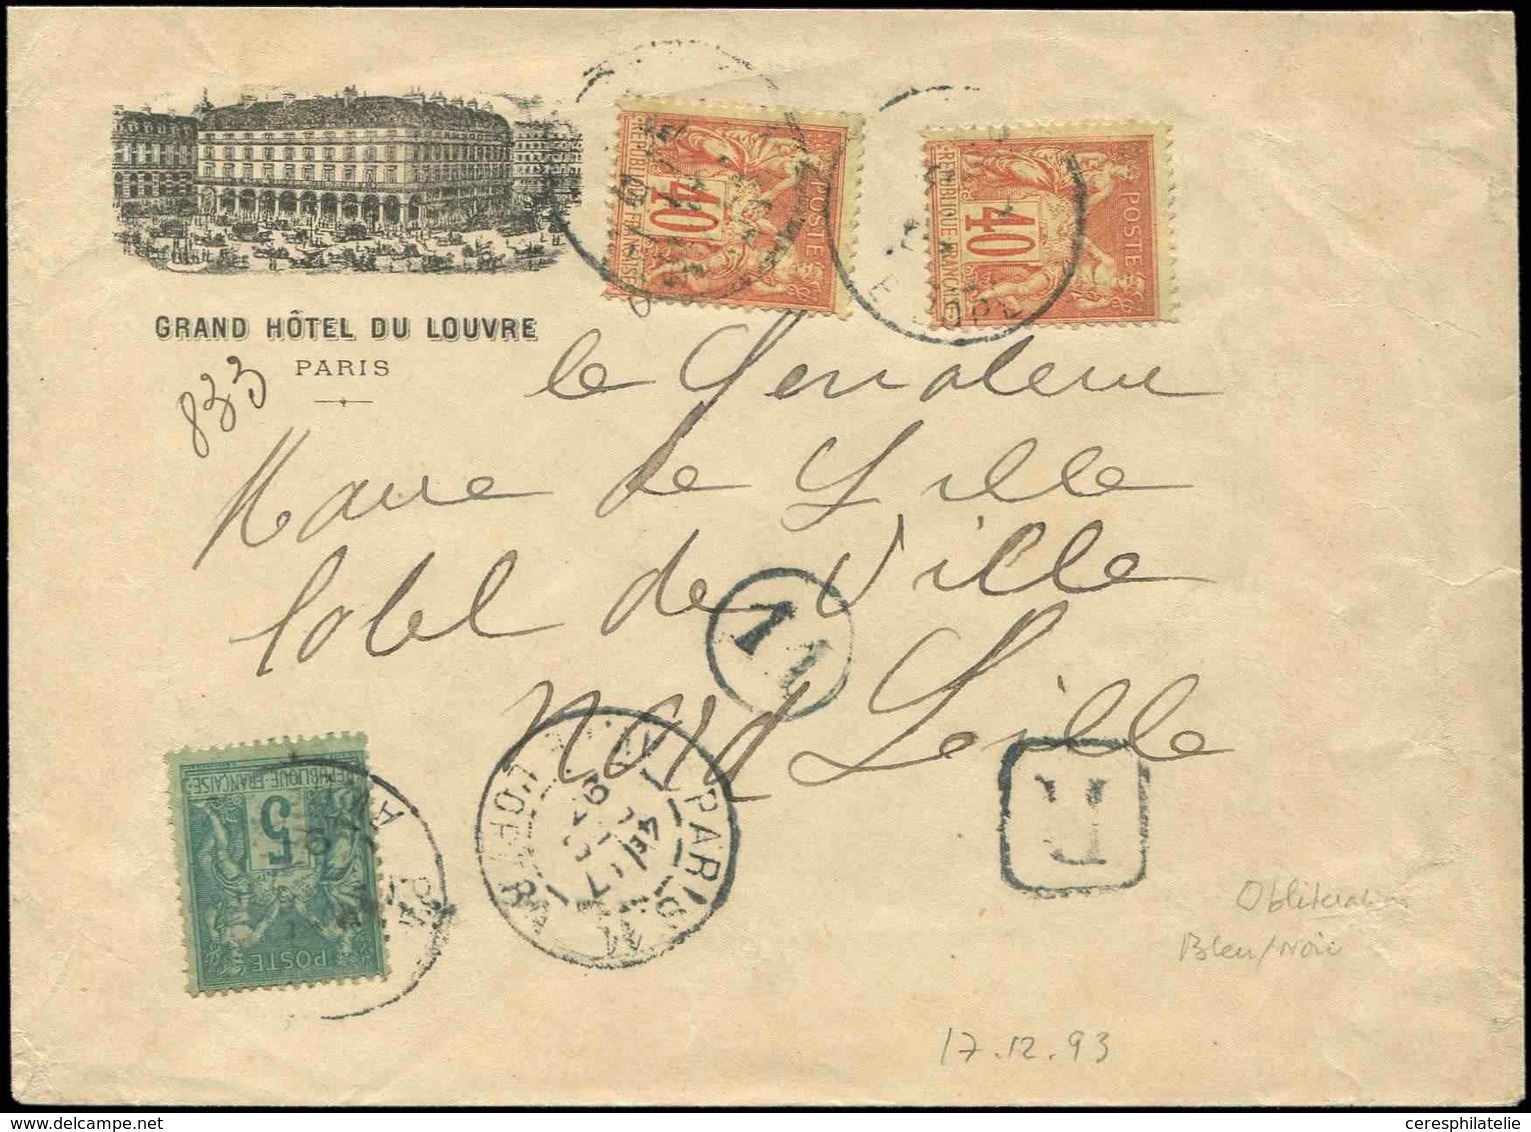 RÉPUBLIQUE FRANÇAISE
40
POSTE
RÉPUBLIQUE FRANÇAISE
40
POSTE
GRAND HÔTEL DU LOUVRE
PARIS
833
le Senateur
Maire de Lille
Hotel de Ville
11
Nord Lille
R
RÉPUBLIQUE-FRANÇAISE
5
POSTE
PARIS
4E
17
93
Obliteration
Bleu/Noir
17.12.93
ceresphilatelie